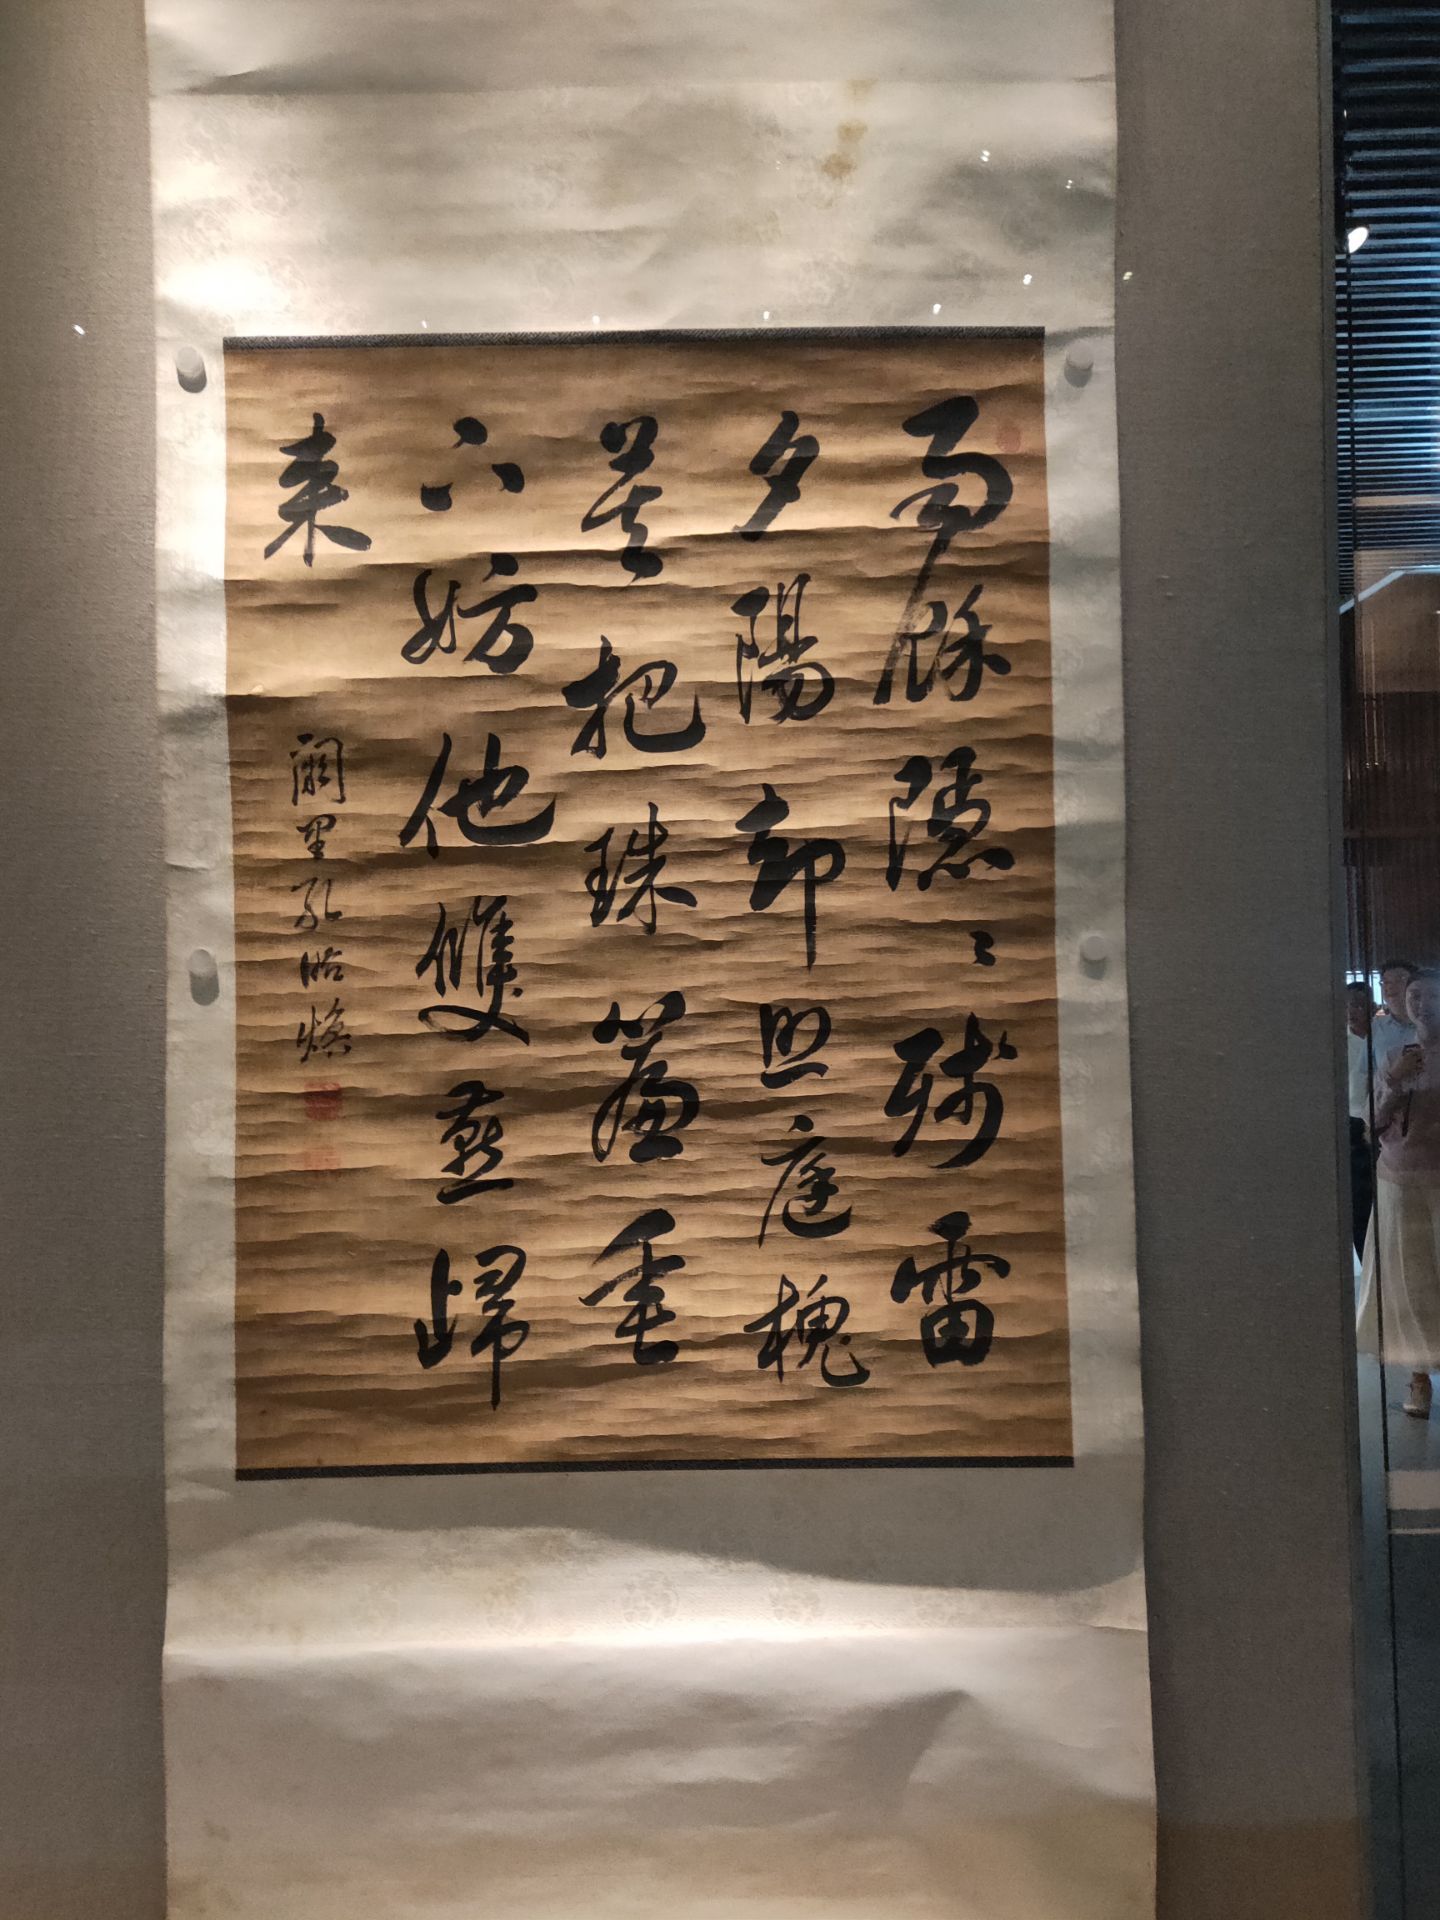 雨餘隱〻殘雷
夕陽却照庭槐
莫把珠簾垂
下妨他雙燕歸
来
闕里孔昭煥